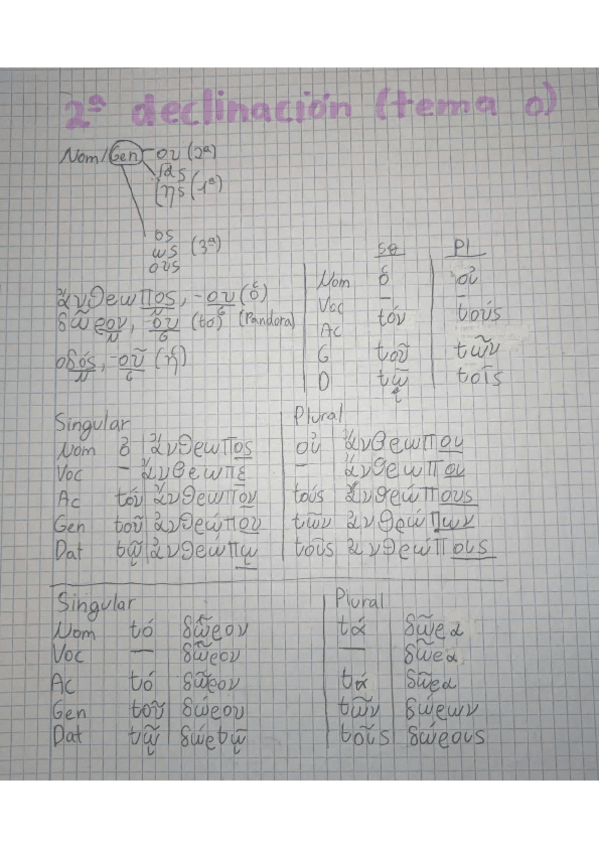 2ª declinación (tema o)
Nom/Gen - ου (2ª)
ας
ης (1ª)
ος
ως (3ª)
ους
Sg Pl
Nom ὁ οἱ
Voc - -
Ac τόν τούς
G τοῦ τῶν
D τῷ τοῖς
ἄνθρωπος, -ου (ὁ)
δῶρον, -ου (τό) (Pandora)
N G
οδός, -οῦ (ἡ)
N G
Singular Plural
Nom ὁ ἄνθρωπος οἱ ἄνθρωποι
Voc - ἄνθρωπε - ἄνθρωποι
Ac τόν ἄνθρωπον τούς ἄνθρώπους
Gen τοῦ ἄνθρώπου τῶν ἄνθρώπων
Dat τῷ ἄνθρώπῳ τοῖς ἄνθρώποις
Singular Plural
Nom τό δῶρον τά δῶρα
Voc — δῶρον — δῶρα
Ac τό δῶρον τά δῶρα
Gen τοῦ δώρου τῶν δώρων
Dat τῷ τοῖς δώροις